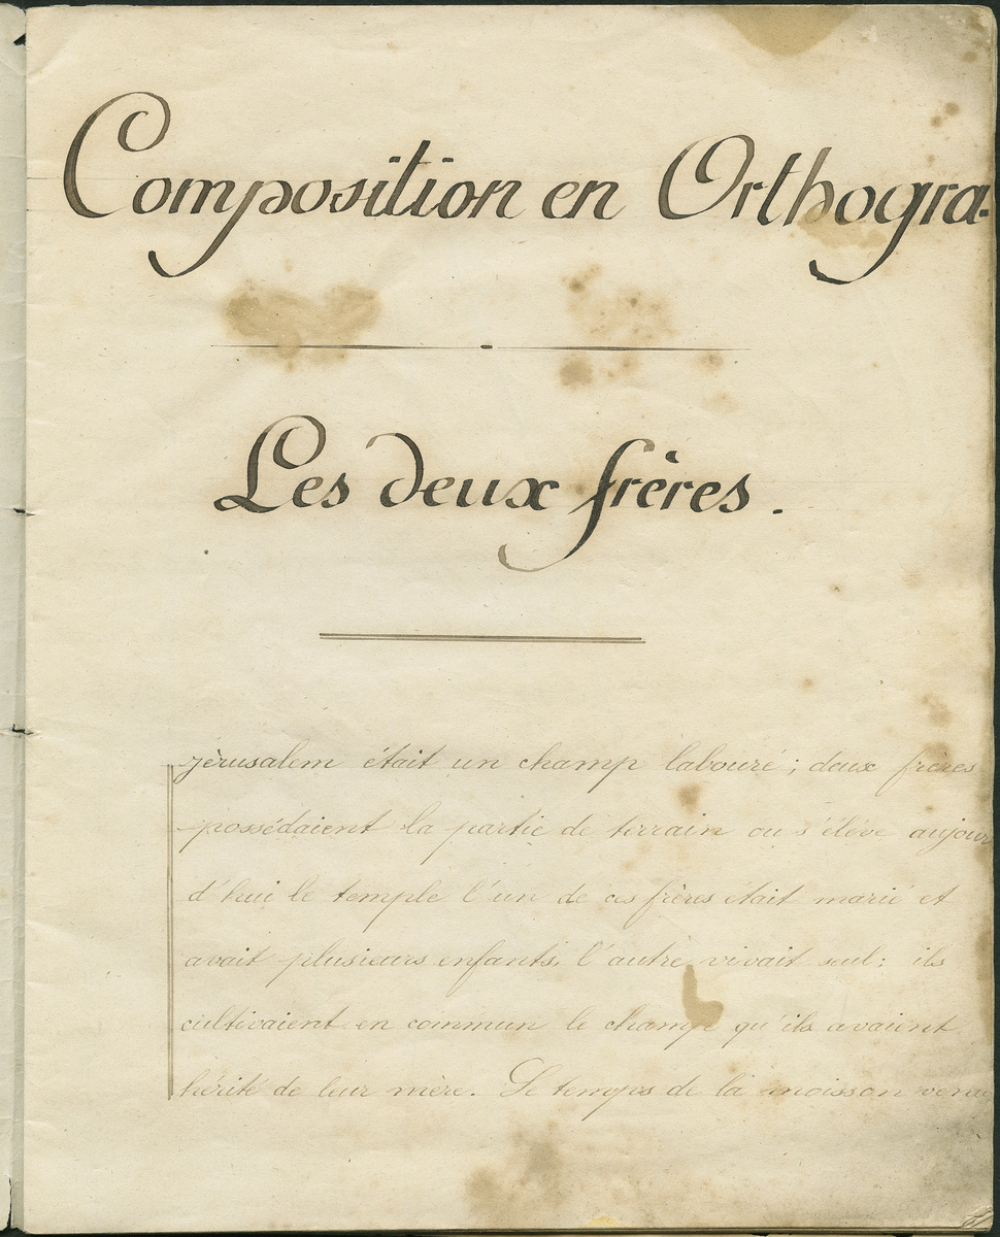 Composition en Orthogra-
Les deux frères.
Jérusalem était un champ labouré ; deux frères
possédaient la partie de terrain ou s'élève aujour
d'hui le temple l'un de ces frères était marié et
avait plusieurs enfants, l'autre vivait seul : ils
cultivaient en commun le champ qu'ils avaient
hérité de leur mère. Le temps de la moisson venu